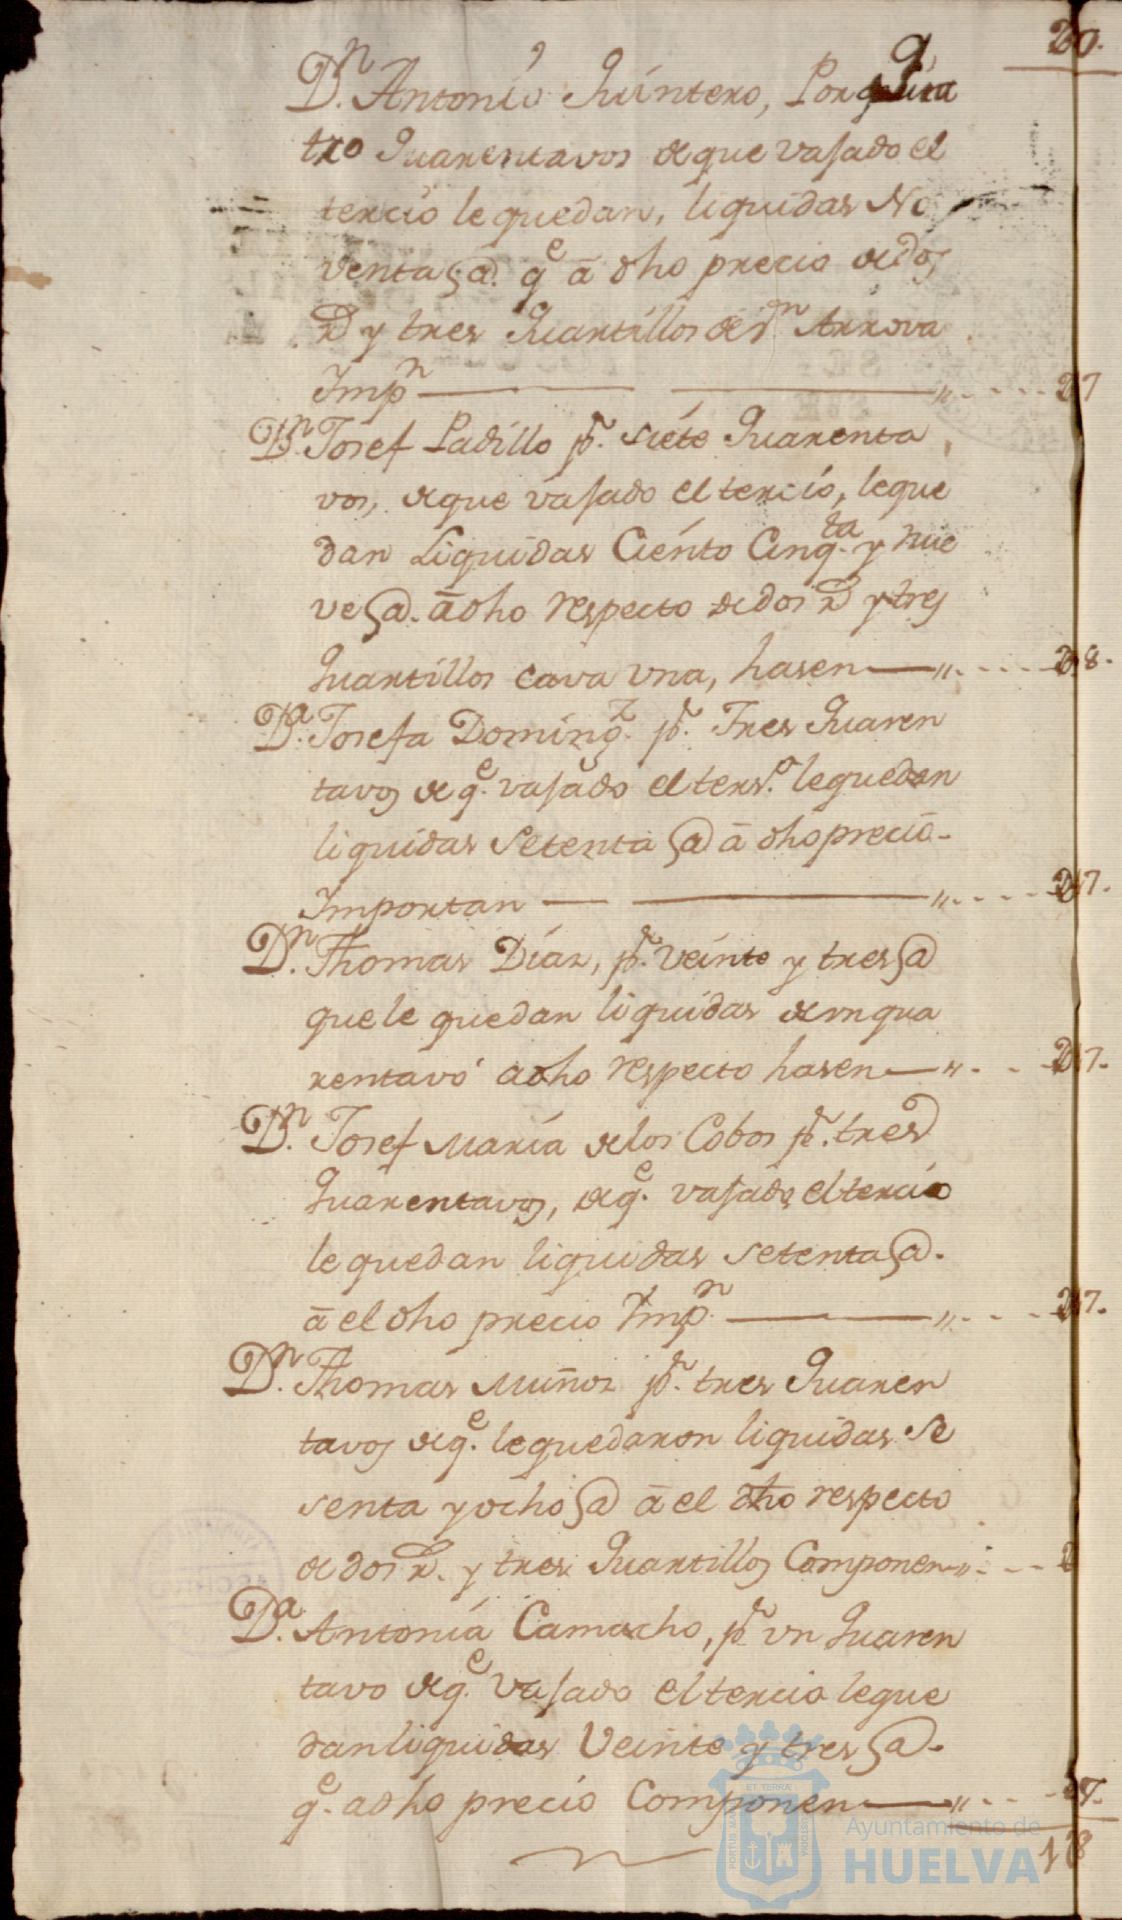 20.
Dn. Antonio Quintero, Por qua
tro Quarentavos de que vajado el
tercio le quedan, liquidas No
venta @. qe â dho precio de dos
rs y tres Quartillos de vn Arrova
Impn ——— 27
Dn. Josef Padillo pr. siete Quarenta
vos, de que vajado el tercio, le que
dan Liquidas Ciento Cinqta. y nue
ve @. â dho respecto de dos rs y tres
Quartillos cava vna, hasen — 28.
Da. Josefa Domingz. pr. Tres Quaren
tavos de qe. vajado el terso. le quedan
liquidas Setenta @ â dho precio-
Importan ——— 27.
Dn. Thomas Diaz, pr. veinte y tres @
que le quedan liquidas de un qua
rentavo â dho respecto hasen — 27.
Dn. Josef Maria de los Cobos pr. tres
Quarentavos, de qe. vajado el tercio
le quedan liquidas setenta @.
â el dho precio Impn. ——— 27.
Dn. Thomas Muñoz pr. tres Quaren
tavos de qe. le quedaron liquidas se
senta y ocho @ â el dho respecto
de dos rs. y tres Quartillos Componen 2
Da. Antonia Camacho, pr vn Quaren
tavo de qe vajado el tercio le que
dan liquidas Veinte y tres @.
qe. a dho precio Componen — 27.
18
ET TERRÆ
Ayuntamiento de
HUELVA